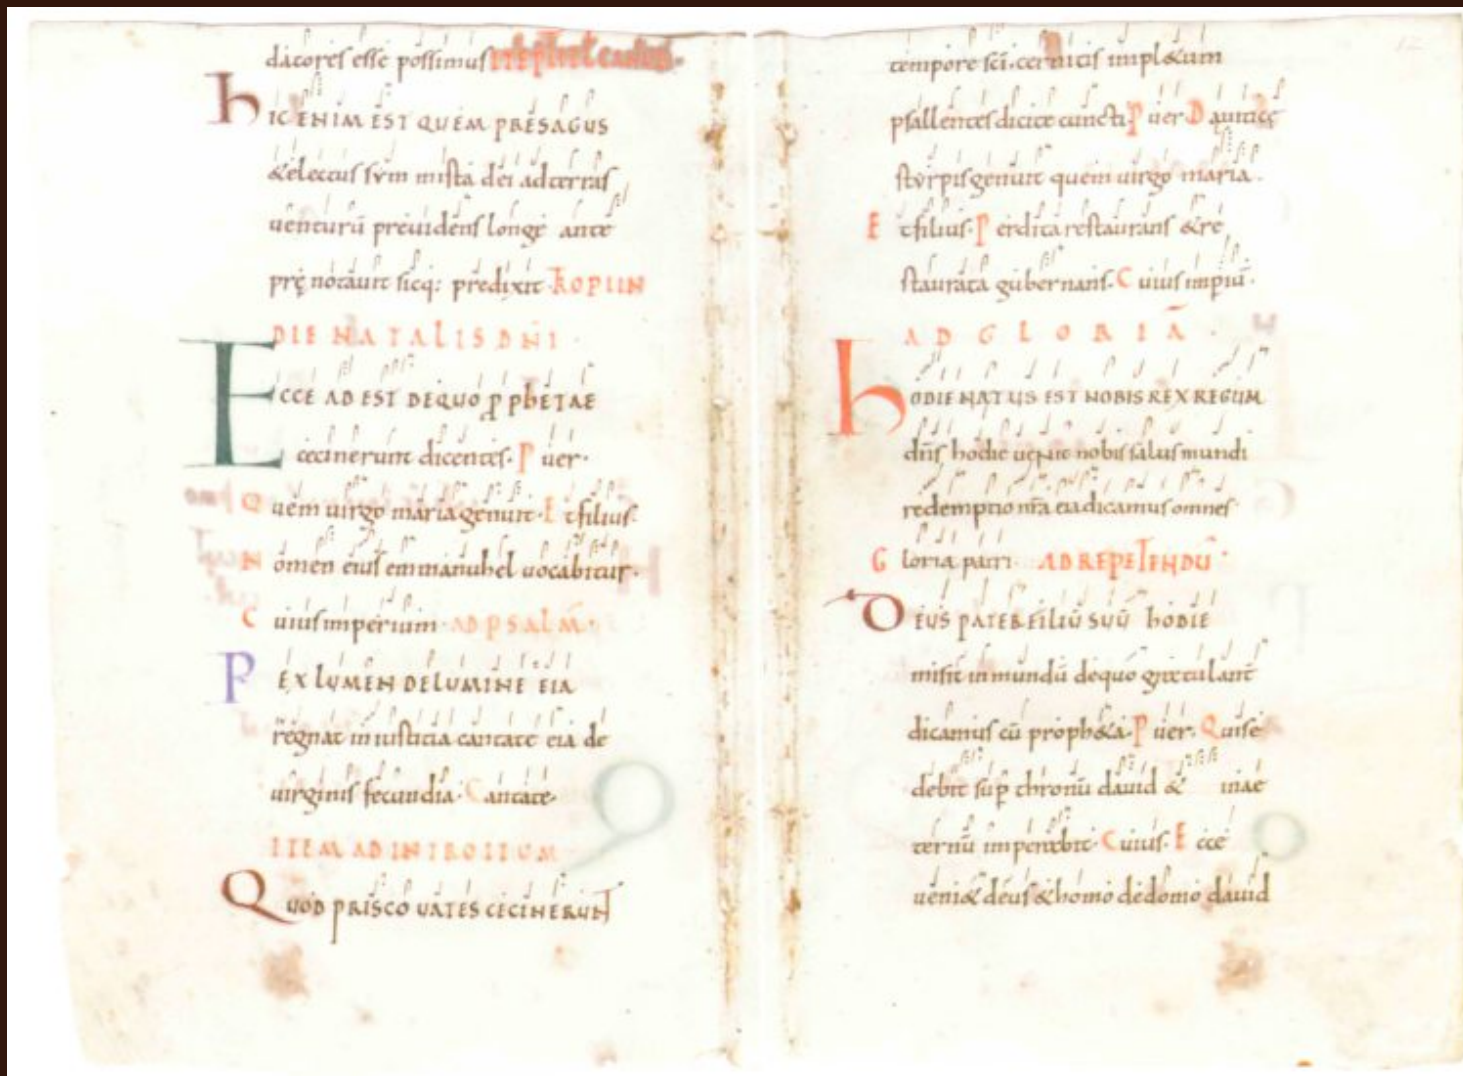 datores esse possimus
hIC ENIM EST QUEM PRESAGUS
&electus symmista dei adterras
venturū previdens longe ante
prę notavit sicq; predixit TROPI IN
DIE NATALIS DNI
ECCE ADEST DEQUO PPhETAE
cecinerunt dicentes. Puer.
Quem virgo maria genuit. Et filius.
Nomen eius emmanuhel vocabitur.
Cuius imperium. AD PSALM.
REX LUMEN DELUMINE EIA
regnat in iusticia cantate eia de
virginis fecundia. Cantate.
ITEM AD INTROITUM
QUOD PRISCO VATES CECINERUNT
tempore sci. cernitis impl&um
psallentes dicite cuncti. Puer. Daviticę
styrpis genuit quem virgo maria.
Et filius. Perdita restaurans &re
staurata gubernans. Cuius impiū.
AD GLORIĀ.
hODIE NATUS EST NOBIS REX REGUM
dns hodie venit nobis salus mundi
redemptio nra eia dicamus omnes.
Gloria patri. AD REPETENDŪ
DEUS PATER FILIŪ SUŪ hODIE
misit in mundū dequo gratulant
dicamus cū proph&a. Puer. Qui se
debit sup thronū david & in ae
ternū imperabit. Cuius. Ecce
veni& deus &homo de domo david